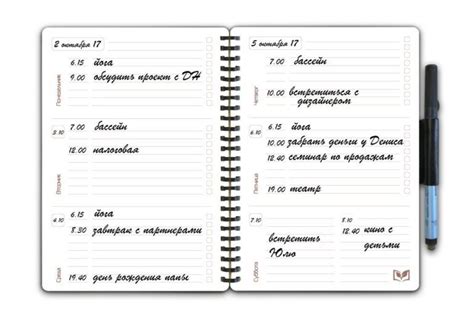 2 октября 17
Понедельник
6.15 йога
9.00 обсудить проект с DH
3.10
Вторник
7.00 бассейн
12.00 налоговая
4.10
Среда
6.15 йога
8.30 завтрак с партнерами
19.40 день рождения папы
5 октября 17
Четверг
7.00 бассейн
10.00 встретиться с
дизайнером
6.10
Пятница
6.15 йога
10.00 забрать деньги у Дениса
12.40 семинар по продажам
19.00 театр
7.10
Суббота
встретить
Юлю
8.10
12.40 кино с
детьми